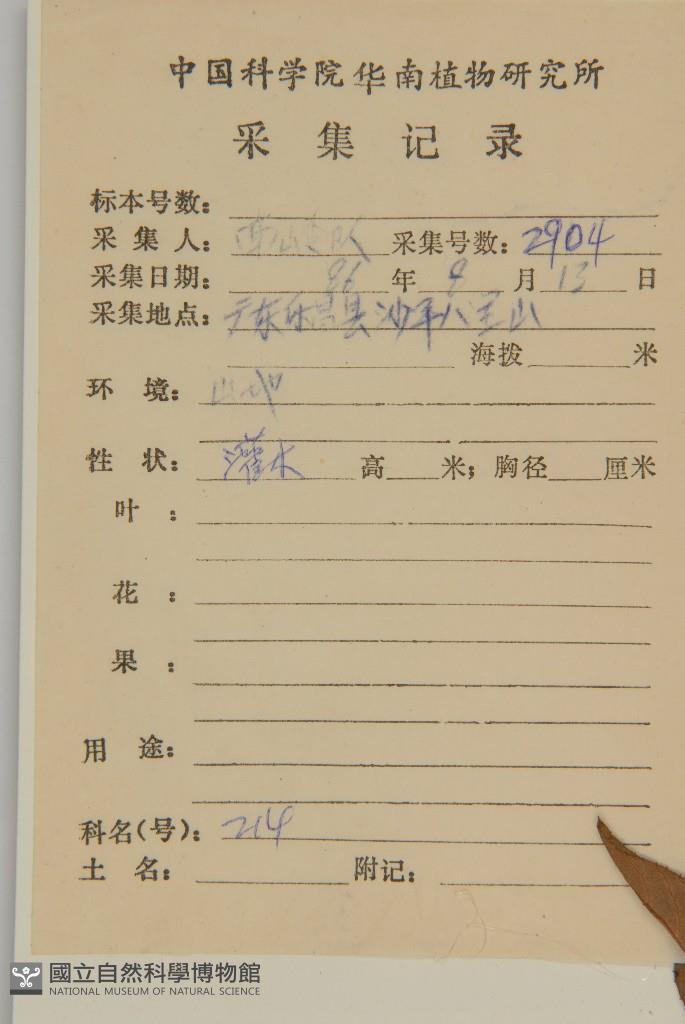 中国科学院华南植物研究所
采集记录
标本号数:
采集人: 采集号数: 2904
采集日期: 86 年 9 月 13 日
采集地点: 广东乐昌县沙平八里山
海拨 米
环境: 山地
性状: 灌木 高 米; 胸径 厘米
叶:
花:
果:
用途:
科名(号): 214
土名: 附记:
國立自然科學博物館
NATIONAL MUSEUM OF NATURAL SCIENCE